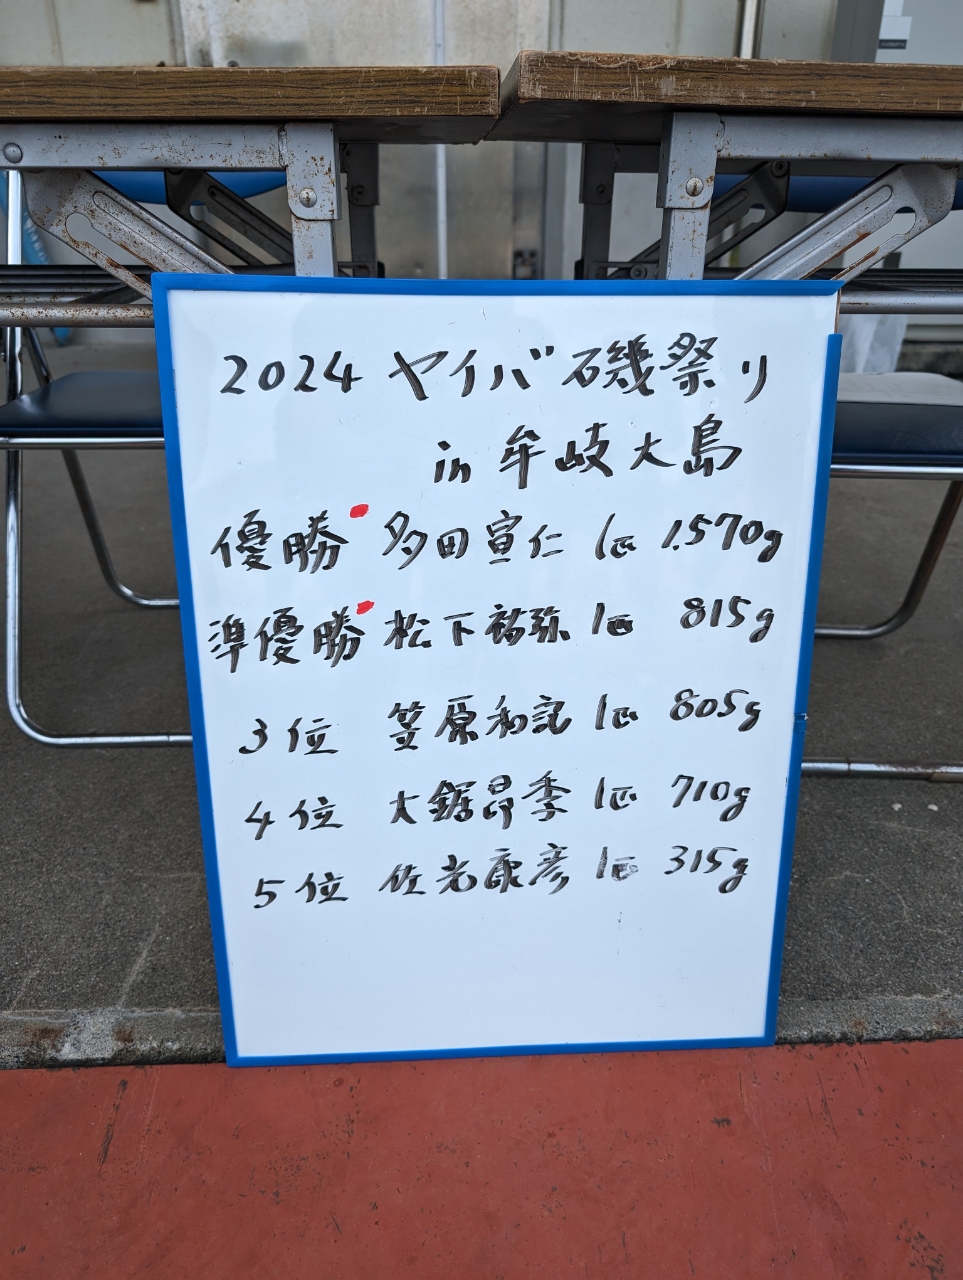 2024 ヤイバ磯祭り
in 牟岐大島
優勝 多田宣仁 1匹 1.570g
準優勝 松下祐弥 1匹 815g
3位 笠原和記 1匹 805g
4位 大鋸昂季 1匹 710g
5位 佐光康彦 1匹 315g